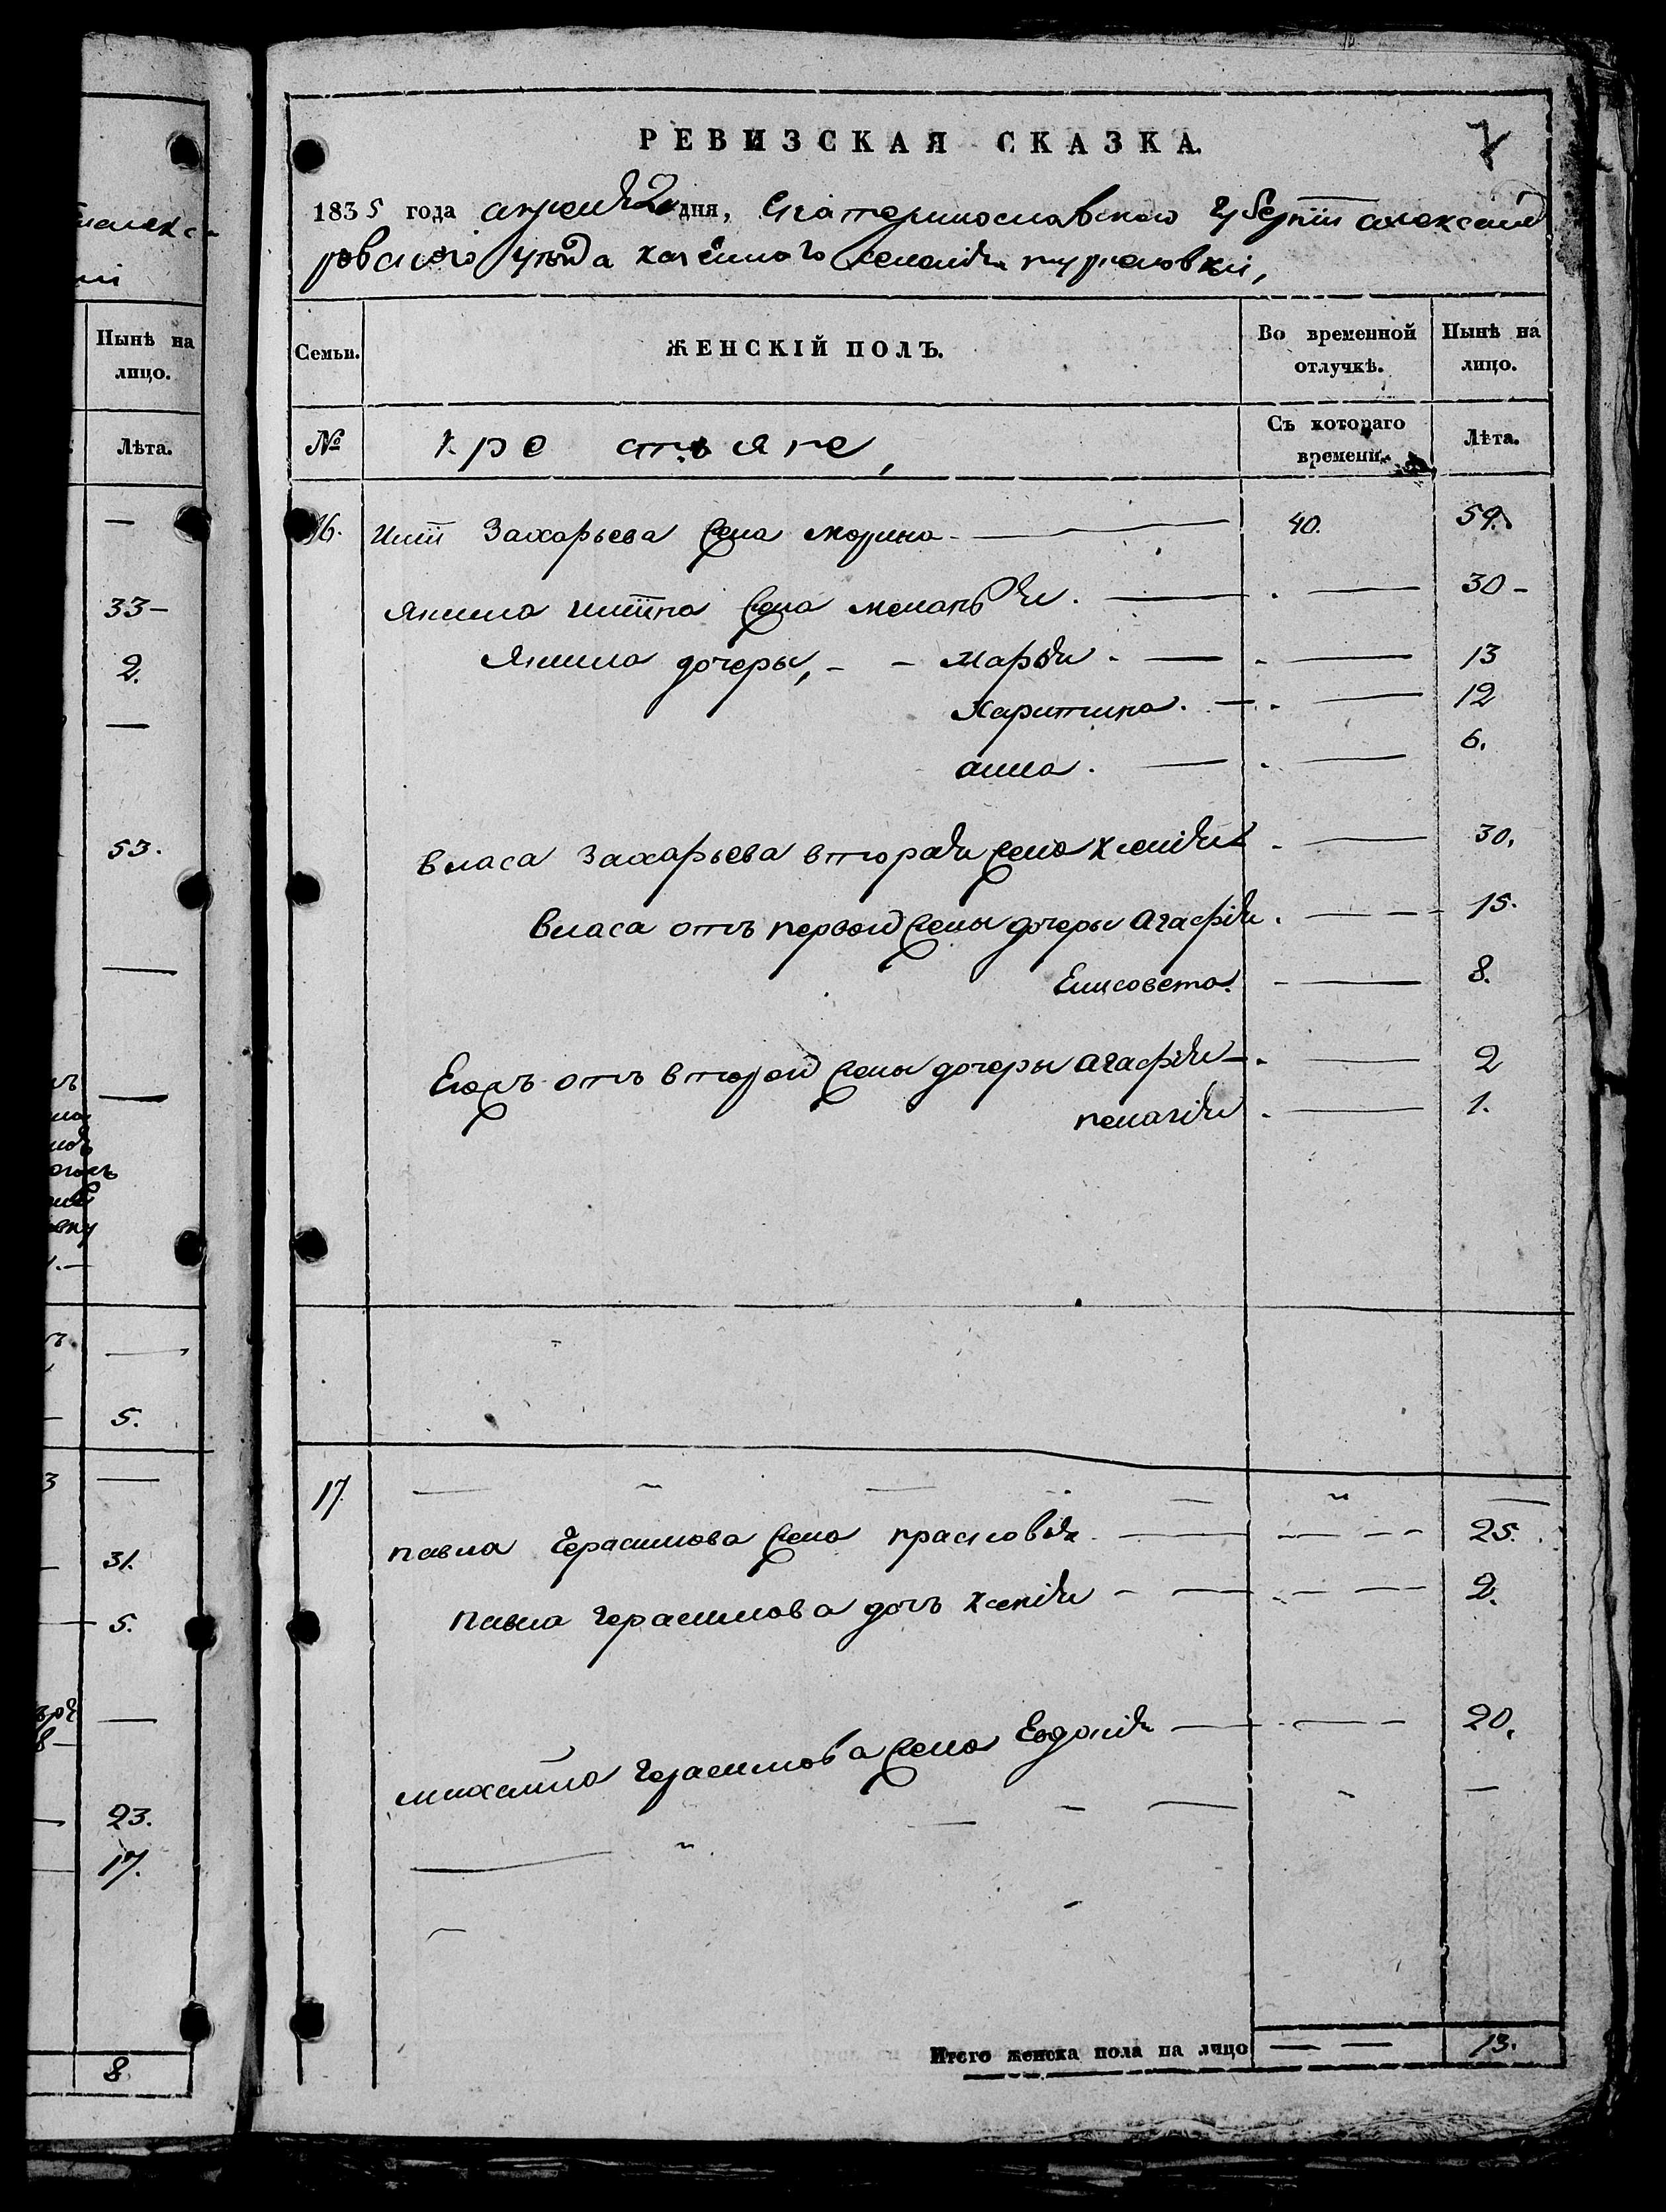 РЕВИЗСКАЯ СКАЗКА.
7
1835 года апреля 2 дня, Екатеринославской губернии александ
ровского уезда казенного селения
Нынѣ на лицо.
Лѣта.
—
33 –
2.
—
53.
—
—
—
5.
—
31.
5.
—
23.
17.
8.
Семьи.
ЖЕНСКІЙ ПОЛЪ.
Во временной отлучкѣ.
Нынѣ на лицо.
№
крестьяне,
Съ котораго времени.
Лѣта.
16. Захарьева жена Марина — 40. 59.
жена меланья. — 30 –
дочеры, – – Марья. — 13
Харитина. — 12
анна. — 6.
Власа Захарьева вторая жена Ксения — 30.
Власа отъ первой жены дочеры Агафия. — 15.
Елисовета. — 8.
Егожъ отъ второй жены дочеры агафия — 2
пелагия. — 1.
17. —
павла Герасимова жена прасковия — 25.
Павла Герасимова дочъ Ксения — 2.
михаила Герасимова жена Евдокия — 20.
—
Итого женска пола на лицо — — 13.